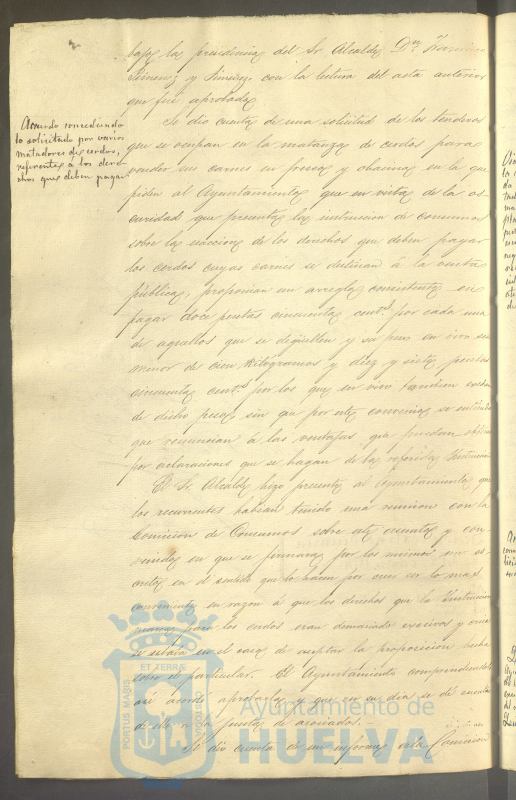 bajo la presidencia del Sr. Alcalde Dn
Jimenez y Jimenez con la lectura del acta anterior
que fué aprobada.
Acuerdo concediendo
lo solicitado por varios
matadores de cerdos,
referente á los dere-
chos que deben pagar
Se dió cuenta de una solicitud de los tenderos
que se ocupan en la matanza de cerdos para
vender sus carnes en fresca y chacina en la que
piden al Ayuntamiento que en vista de la os-
curidad que presenta la instruccion de consumos
sobre la esaccion de los derechos que deben pagar
los cerdos cuyas carnes se destinan á la venta
pública, proponian un arreglo consistente en
pagar doce pesetas cincuenta cents por cada uno
de aquellos que se degüellen y su peso en vivo sea
menor de cien kilógramos y diez y siete pesetas
cincuenta cents por los que en vivo tambien escedan
de dicho peso, sin que por este convenio se entienda
que renuncian á las ventajas que puedan
por aclaraciones que se hagan de la referida Instruccion
El Sr. Alcalde hizo presente al Ayuntamiento que
los recurrentes habian tenido una reunion con la
Comision de Consumos sobre este asunto y con-
venido en que se firmara por los mismos un es-
crito en el sentido que lo hacen por creer ser lo mas
conveniente en razon á que los derechos que la Instruccion
para los cerdos eran demasiado excesivos y que
se estaba en el caso de aceptar la proposicion hecha
sobre el particular. El Ayuntamiento comprendiendolo
así acordó aprobarlo y que en su dia se dé cuenta
de ello a la junta de asociados.
Se dió cuenta de un informe de la Comision
PORTUS MARIS
ET TERRÆ
CUSTODIA
Ayuntamiento de
HUELVA